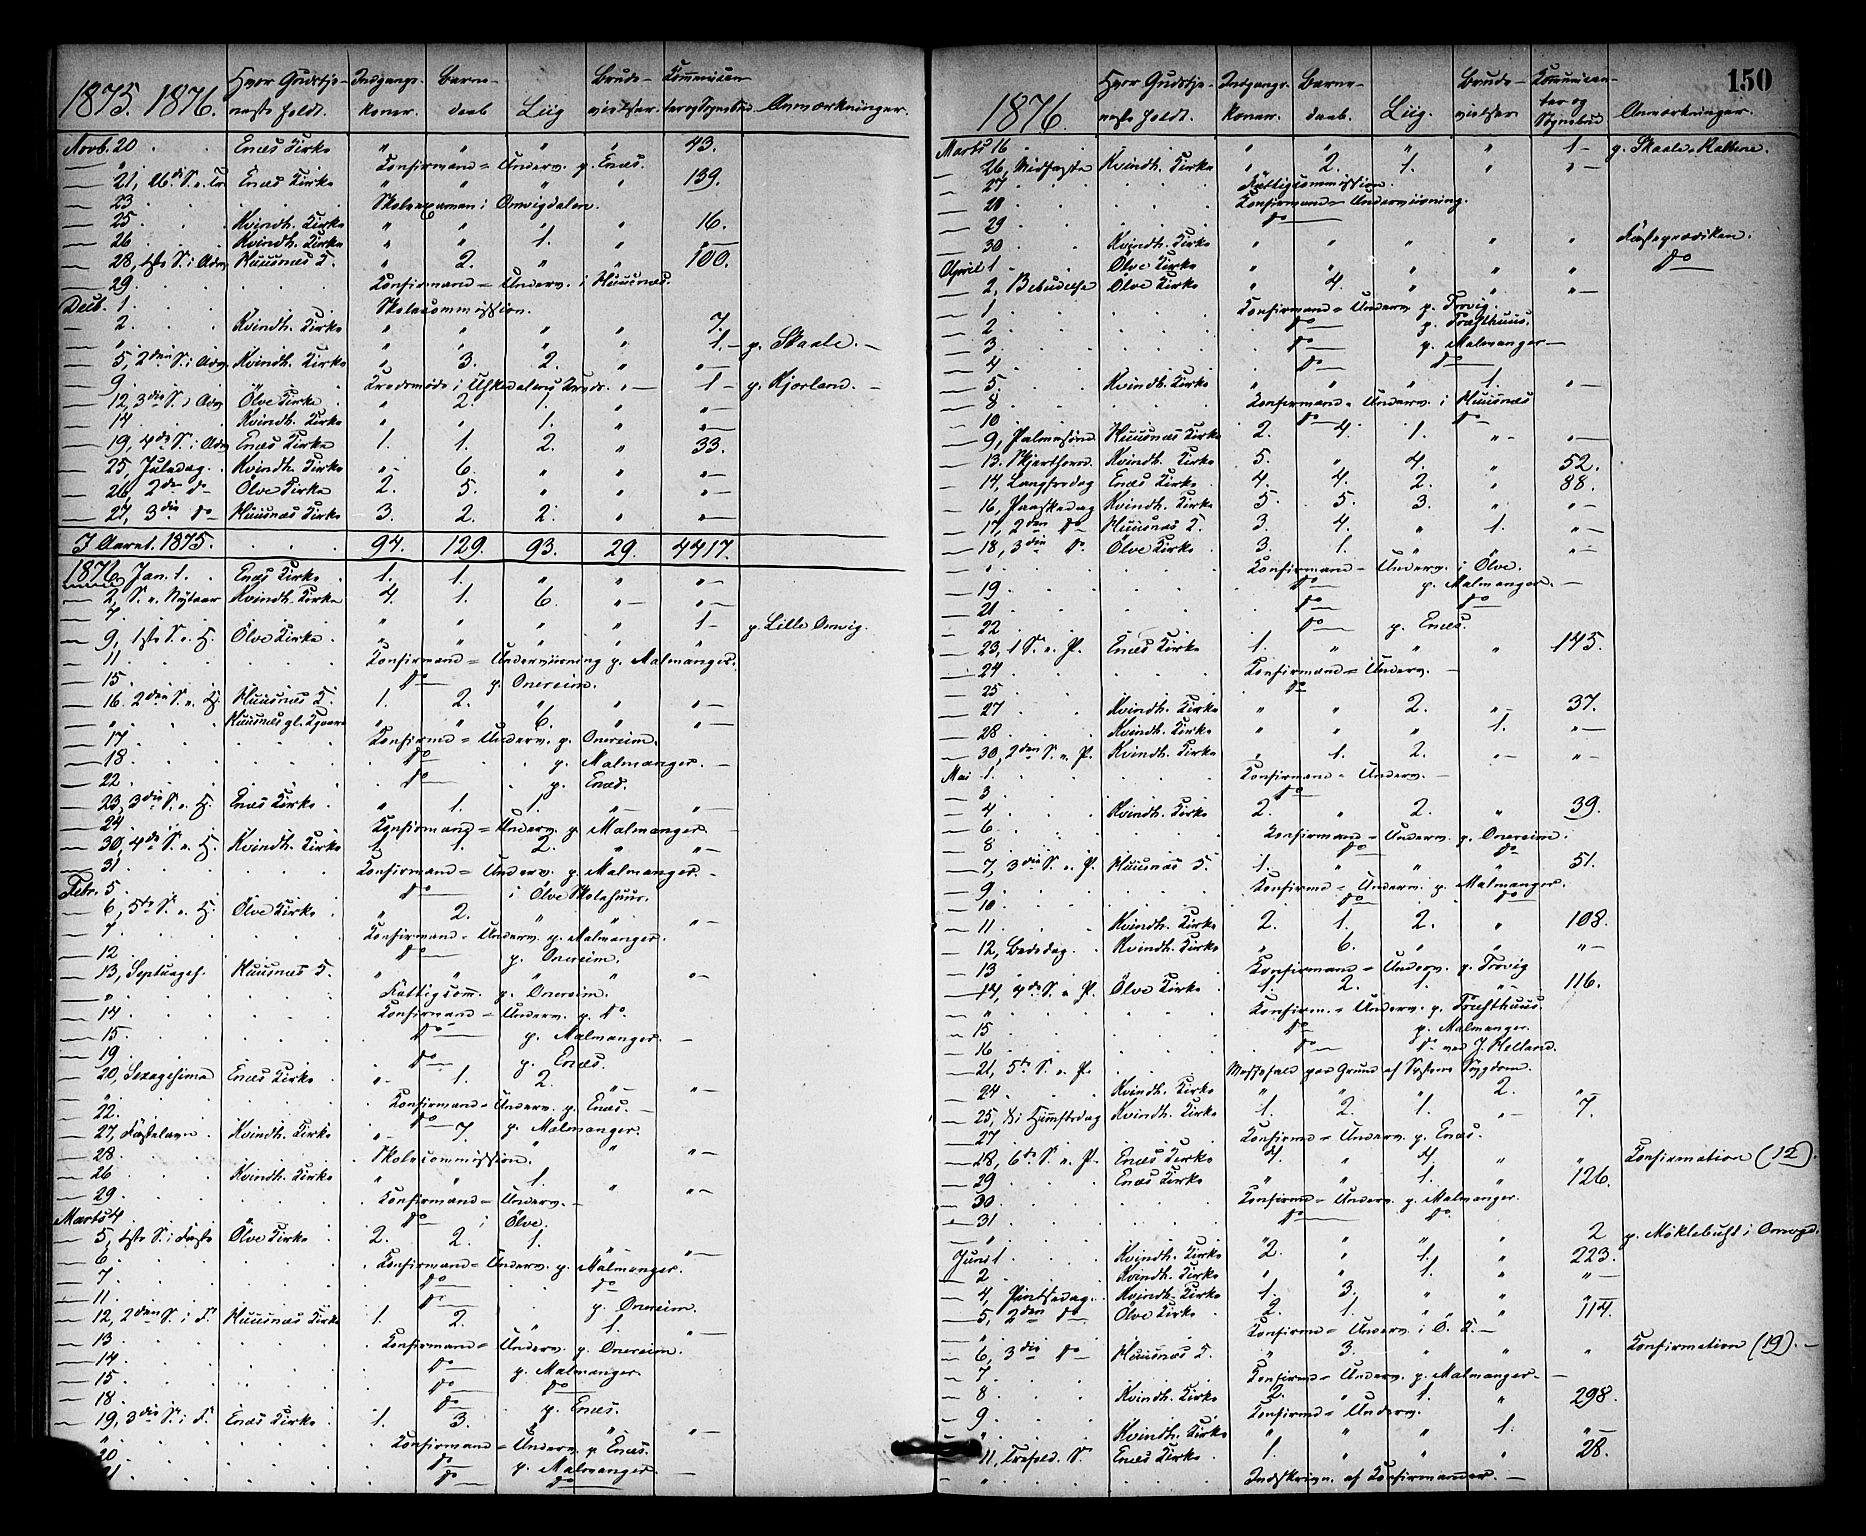 1875. 1876. Hvor Gudstje- neste holdt. Indgangs- koner. Barne- daab Liig Brude- vielser. Anmærkninger.
Novb. 20 Enæs Kirke " " " " 43.
" Confirmand = Underv. p. Enæs.
21, 26de S. e. Tr. Enæs Kirke " " " " 139.
23 Skoleexamen i Omvigdalen.
25 Kvindh. Kirke " " " " 16.
26 Kvindh. Kirke " " 1. "
28, 1ste S. i Adv. Huusnæs K. " 2. " " 100.
29 Confirmand = Underv. i Huusnæs.
Decb. 1. Skolecommission.
2. Kvindh. Kirke " " " " 7.
" " " " " 1.- p. Skaale. -
5, 2den S. i Adv. Kvindh. Kirke " 3. 2. " "-
9 Kredsmøde i Kreds. " 1- p. Kjærland. -
12, 3die S. i Adv. Ölve Kirke " 2. 1. " "-
14 Kvindh. Kirke " " 1. " "-
19, 4de S. i Adv. Enæs Kirke 1. 1. 2. " 33.
25, Juledag. Kvindh. Kirke "- 6. " " "-
26, 2den do Ölve Kirke 2. 5. " " "-
27, 3die do Huusnæs Kirke 3. 2. 2. " "-
I Aaret 1875. 94. 129. 93. 29. 4417.
1876, Jan. 1. Enæs Kirke 1. 1. " " "-
2, S. e. Nytaar Kvindh. Kirke 4. 1. 6. "- "-
7. " " " " 1- p. Lille Omvig.
9, 1ste S. e. H. Ölve Kirke " " " "
11. Confirmand = Underviisning p. Malmanger.
15. do p. Onereim.
16. 2den S. e. H. Huusnæs K. 1. 2. " " "-
" Huusnæs gl. " " 6. " "-
17 Confirmd = Underv. p. Onereim.
18. do p. Malmanger. -
22. do p. Enæs.
23, 3die S. e. H. Enæs Kirke " 1. 1. "- "-
24. Confirmand = Underv. p. Malmanger.
30, 4de S. e. H. Kvindh. Kirke 1. 1. 2. " "-
31. Confirmand = Underv. p. Malmanger. -
Febr. 5 do i Ölve Skolehuus.
6, 5te S. e. H. Ölve Kirke " 2. " " "-
7. Confirmand = Underv. p. Malmanger.
12. do p. Onereim.
13, Septuages. Huusnæs K. " " " " "-
" Fattigcom. p. Onereim.
14 Confirmand = Underv. p. do.
15. do p. Malmanger. -
19. do p. Enæs.
20, Sexagesima Enæs Kirke "- 1. 2. "- "-
" Confirmand = Underv. p. Enæs. -
22. do p. Malmanger.
27, Fastelavn Kvindh. Kirke "- 7. " " "-
28. Skolecommission.
26 Kvindh. Kirke " " 1. " "-
29. Confirmand = Underv. -
Marts 4 do i Ölve.
5, 1ste S. i Faste Ölve Kirke 2. 2. 1. "- "-
6. Confirmand = Underv. p. Malmanger.
7. do do
11. do p. Onereim
12, 2den S. i F. Huusnæs Kirke 1. 2. " 1. "-
13. Confirmand = Underv. p. Onereim.
14. do p. Malmanger.
15. do do
18. do p. Enæs.
19, 3die S. i F. Enæs Kirke 1. 3. " " "-
" Confirmand = Underv. p. Enæs.
20. do p. Malmanger. -
21. do do
150
1876. Hvor Gudstje- neste holdt. Indgangs- koner. Barne- daab. Liig. Brude- vielser Communican- ter og Sognebud Anmærkninger.
Marts 16 " " " " 1- p. Skaale
26, Midfaste Kvindh. Kirke " 2. 1. " "-
27 Fattigcommission.
28 Confirmand = Underviisning.
29 do
30 Kvindh. Kirke " " " " " Fasteprædiken.
April 1. Ölve Kirke " " " " " do
2, Bebudelse Ölve Kirke " 4. " " "-
1 Confirmand = Underv. p. Trovig.
2 do
3. do p. Malmanger -
4 do do
5. Kvindh. Kirke " " " 1. "-
8 Confirmand = Underv. i Huusnæs
10. do do
9, Palmesönd. Huusnæs Kirke 2. 4. 1. "- "-
13. Skjærthorsd. Kvindh. Kirke 5. " 4. " 52.
14, Langfredag Enæs Kirke 4. 4. 2. " 88.
16, Paaskedag Kvindh. Kirke 5. 5. 3. " "-
17, 2den do Huusnæs K. 3. 4. " 1. "-
18, 3die do Ölve Kirke 3. 1. " "-
" Confirmand = Underv. i Ölve.
19 do p. Malmanger. -
21. do do
22 do p. Enæs.
23, 1 S. e. P. Enæs Kirke 1. " " " 145.
24 Confirmand = Underv. -
25 do
27 Kvindh. Kirke " " 2. "- 37.
28. Kvindh. Kirke " " " 1. "-
30, 2den S. e. P. Kvindh. Kirke " 1. 2. "- "-
Mai 1. Confirmand = Underv. -
3 do
4 Kvindh. Kirke 2. " 2. " 39.
6 Confirmand = Underv. p. Onereim.
8. do do
7, 3die S. e. P. Huusnæs K. 1. " " " 51.
9 Confirmd = Underv. p. Malmanger.
10 do do
11 Kvindh. Kirke 2. 1. 2. " 108.
12, Bededag. Kvindh. Kirke " 6. " " "-
13 Confirmand = Underv. p. Trovig
14, 4de S. e. P. Ölve Kirke 1. 2. 1. "- 116.
" Confirm. = Underv. p.
15 do p. Malmanger.
16 do do ved J. Helland.
21, 5te S. e. P. Messefald paa Grund af Sygdom.
24 Kvindh. Kirke " " " 2. "-
25, Himlfrdag Kvindh. Kirke 1. 2. 1. "- 7.
27 Confirmd = Underv. p. Enæs.
28, 6te S. e. P. Enæs Kirke 4. " 4. " " Confirmation (12).
29 Enæs Kirke " " 1. " 126.
30. Confirmd = Underv. p. Malmanger.
31 do do.
" " " " " 2 p. Möklebust i Omvgd.
Juni 1 Kvindh. Kirke 2. " 1. " 223.
2 Kvindh. Kirke " " 1. " "-
4, Pintsedag. Kvindh. Kirke 1. 3. " " "-
5, 2den do Ölve Kirke 2. 1. " " 114.
" Confirmd = Underv. i Ö. K. -
6, 3die do Huusnæs K. " 3. " " " Confirmation (19). -
7. Confirmd = Underv. p. Malmanger. -
8 Kvindh. Kirke 2. " 1. " 298.
9 Confirmd = Underv.
" Kvindh. Kirke " " " 1. "-
11, Trefold. S. Enæs Kirke 1. " " " 28.
" Indskrivn. af Confirmander. -